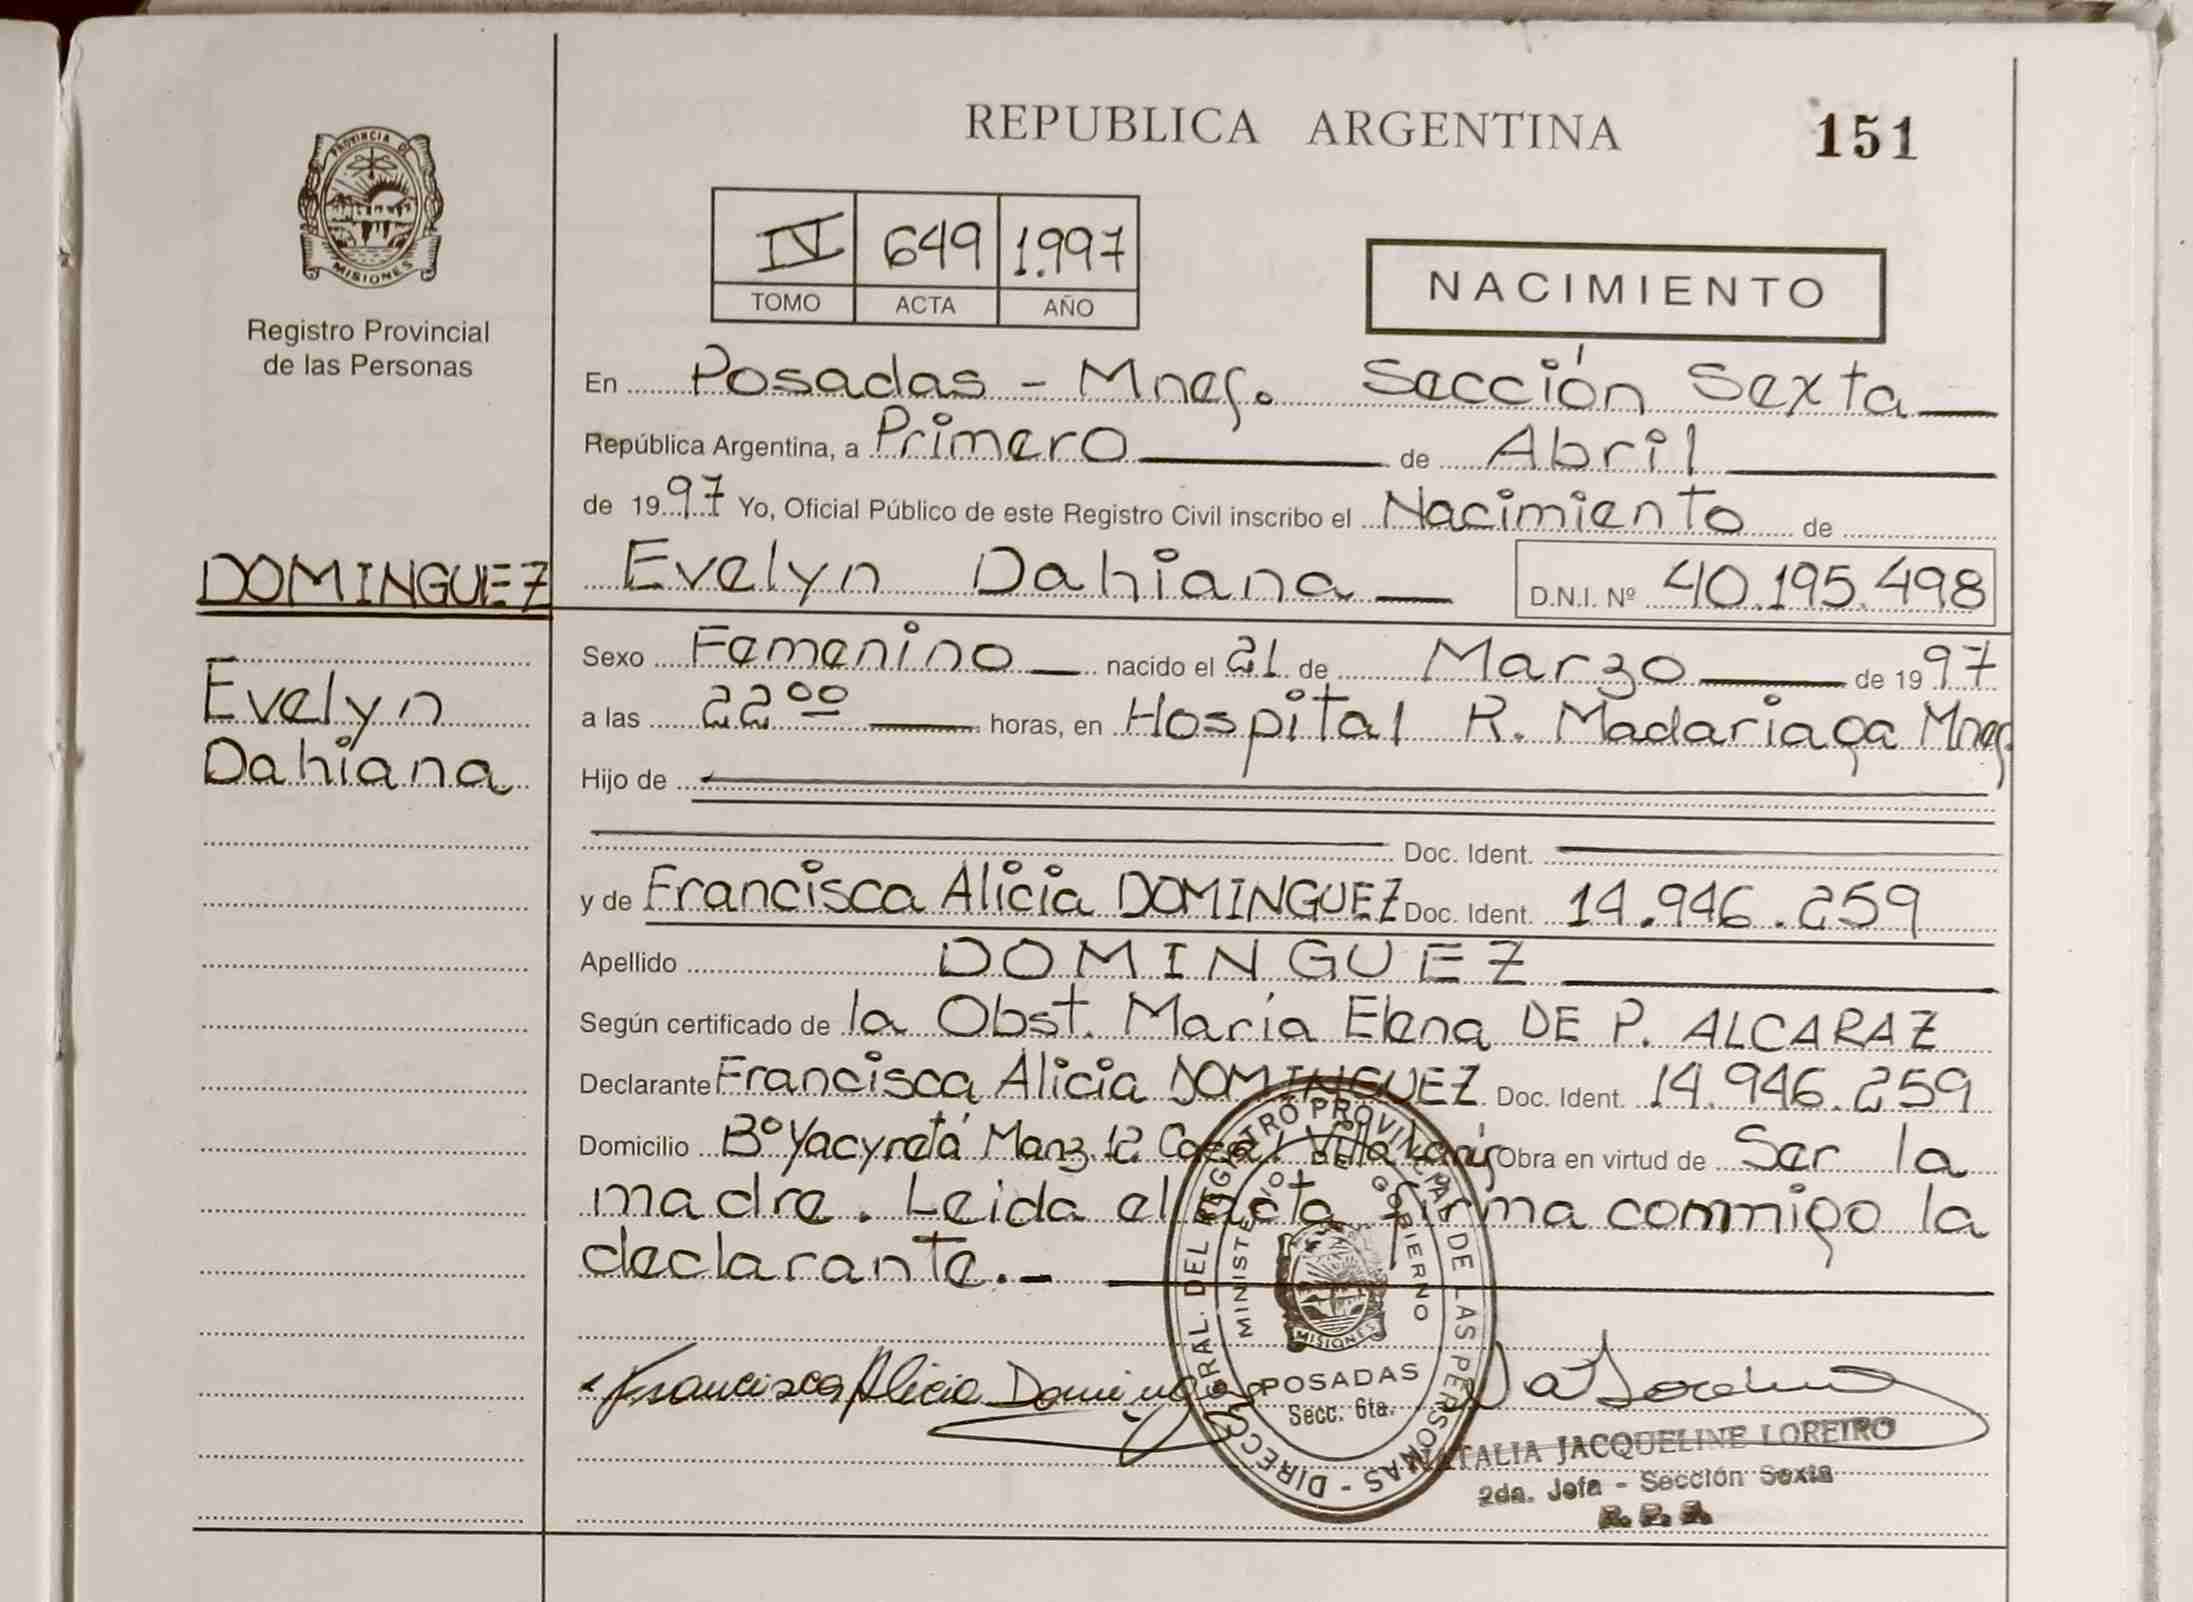 REPUBLICA ARGENTINA
151
PROVINCIA DE
MISIONES
Registro Provincial
de las Personas
IV 649 1.997
TOMO ACTA AÑO
NACIMIENTO
En Posadas - Mnes. Sección Sexta
República Argentina, a Primero de Abril
de 1997 Yo, Oficial Público de este Registro Civil inscribo el Nacimiento de
DOMINGUEZ
Evelyn Dahiana D.N.I. Nº 40.195.498
Sexo Femenino nacido el 21 de Marzo de 1997
Evelyn
a las 22 00 horas, en Hospital R. Madariaga Mnes.
Dahiana
Hijo de
Doc. Ident.
y de Francisca Alicia DOMINGUEZ Doc. Ident. 14.946.259
Apellido DOMINGUEZ
Según certificado de la Obst. María Elena DE P. ALCARAZ
Declarante Francisca Alicia DOMINGUEZ Doc. Ident. 14.946.259
Domicilio Bº Yacyretá Manz. 12 Casa 1 Villa Lanús Obra en virtud de Ser la
madre. Leida el acta firma conmigo la
declarante.-
DIREC. GRAL. DEL REGISTRO PROVINCIAL DE LAS PERSONAS -
MINISTERIO DE GOBIERNO
MISIONES
POSADAS
Secc. 6ta.
Francisca Alicia Dominguez
NATALIA JACQUELINE LOREIRO
2da. Jefa - Sección Sexta
R. P. P.